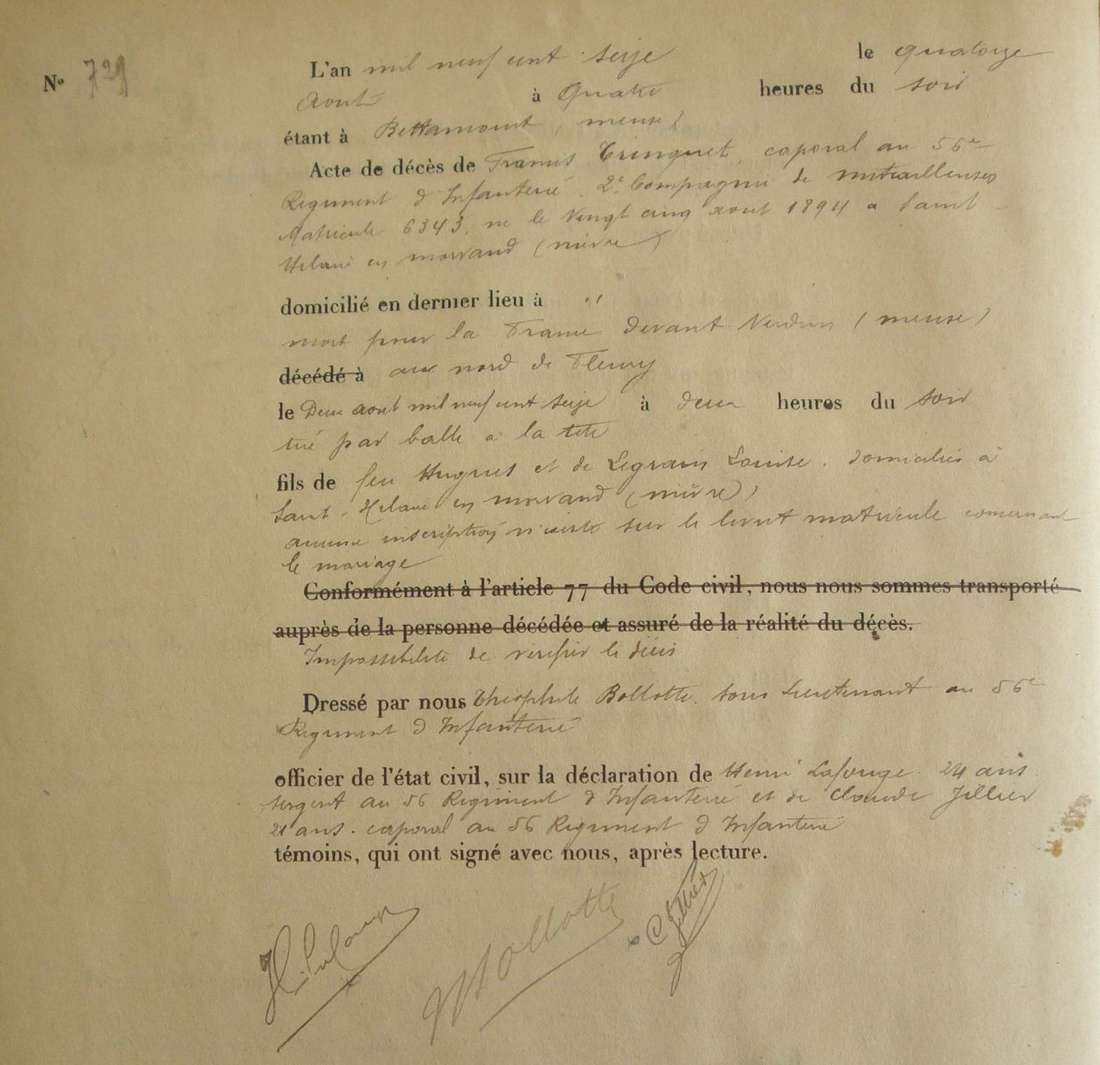 N° 729
L'an mil neuf cent seize le quatorze
Aout à Quatre heures du soir
étant à Bettamont, meuse
Acte de décès de Francis Tringuet, caporal au 56e
Regiment d'Infanterie. 2e Compagnie de mitrailleuses
Matricule 6343, né le Vingt cinq aout 1894 a Saint
Hilaire en morvand (nièvre)
domicilié en dernier lieu à "
mort pour la France devant Verdun (meuse)
décédé à au nord de Fleury
le Deux aout mil neuf cent seize à deux heures du soir
tué par balle a la tete
fils de feu Hugues et de Legrain Louise. domiciliés à
Saint-Hilaire en morvand (nièvre)
aucune inscription n'existe sur le livret matricule concernant
le mariage
Conformément à l'article 77 du Code civil, nous nous sommes transporté
auprès de la personne décédée et assuré de la réalité du décès.
Impossibilité de vérifier le décès
Dressé par nous Théophile Bollotte. sous Lieutenant au 56e
Regiment d'Infanterie
officier de l'état civil, sur la déclaration de Henri Lafouge. 24 ans
sergent au 56 Regiment d'Infanterie et de Claude Jillier
21 ans. caporal au 56 Regiment d'Infanterie
témoins, qui ont signé avec nous, après lecture.
H. Lafouge Bollotte C Jillier